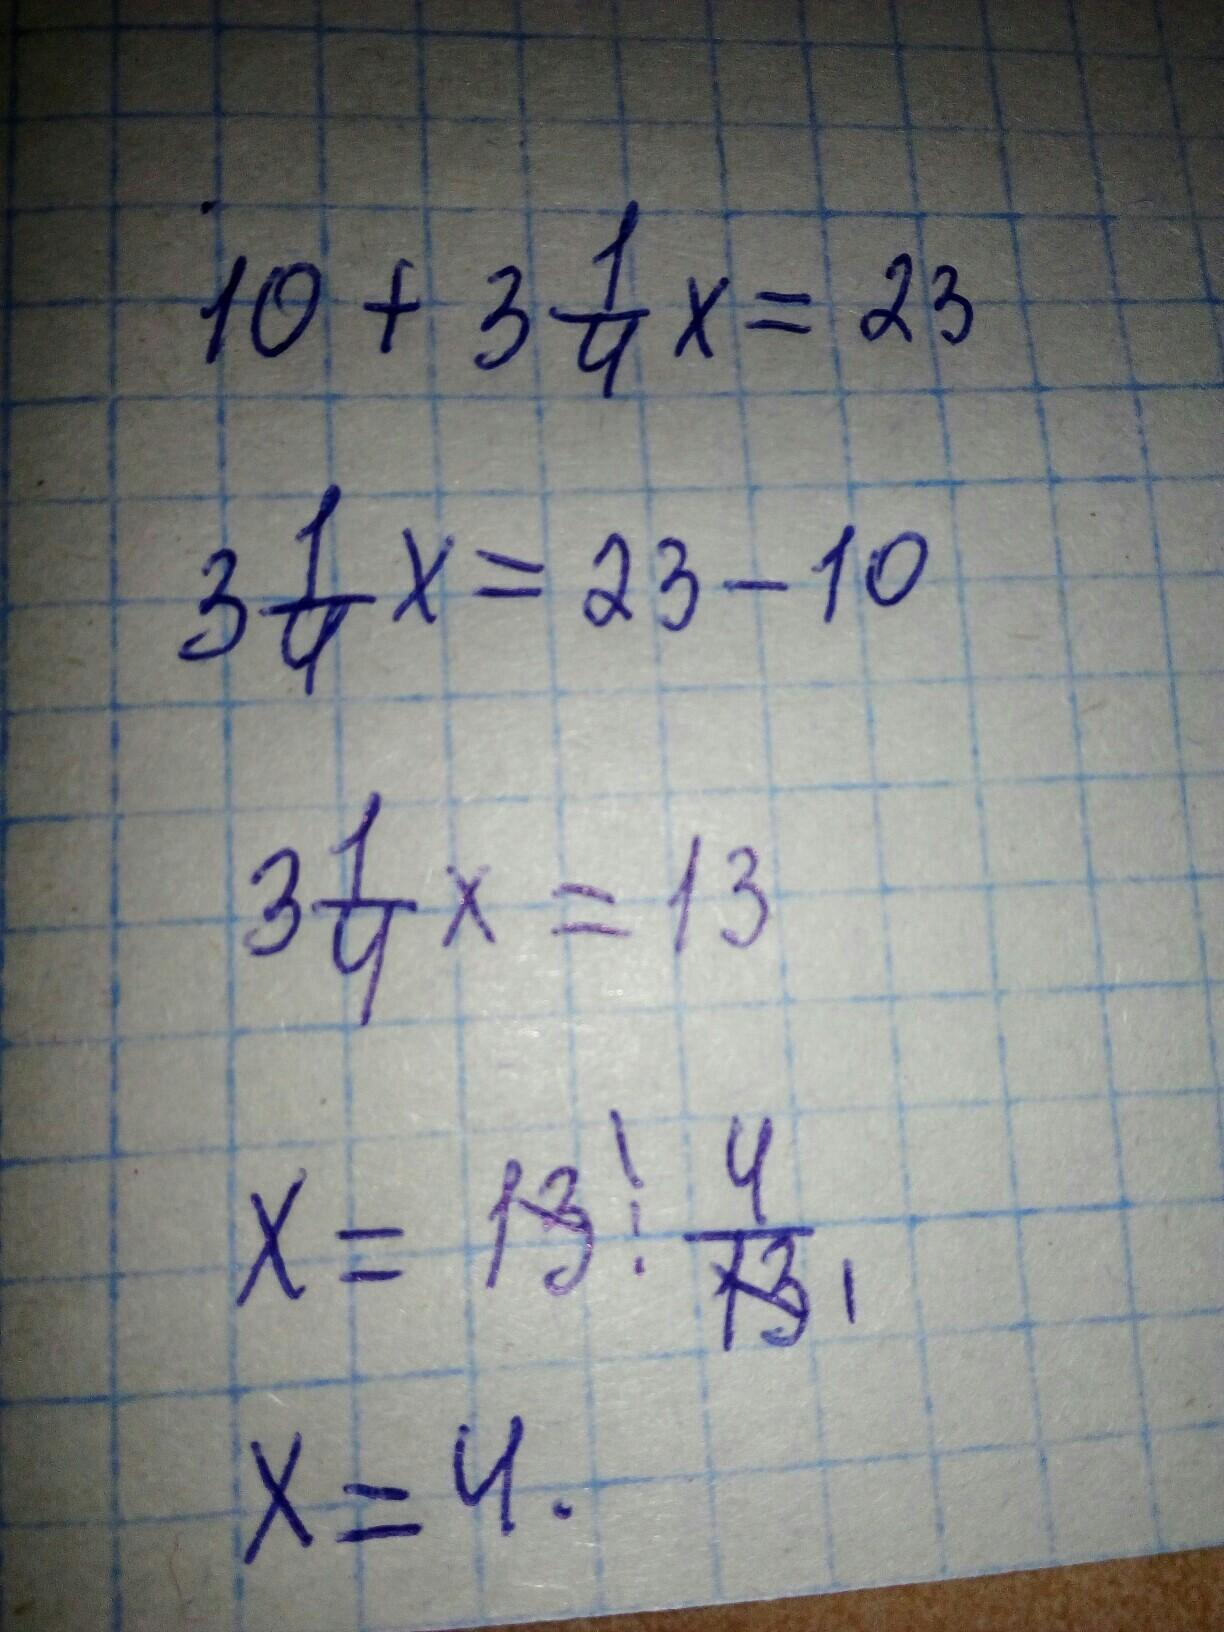 10 + 3 1/4 x = 23
3 1/4 x = 23 - 10
3 1/4 x = 13
x = 13 : 4/13
x = 4.